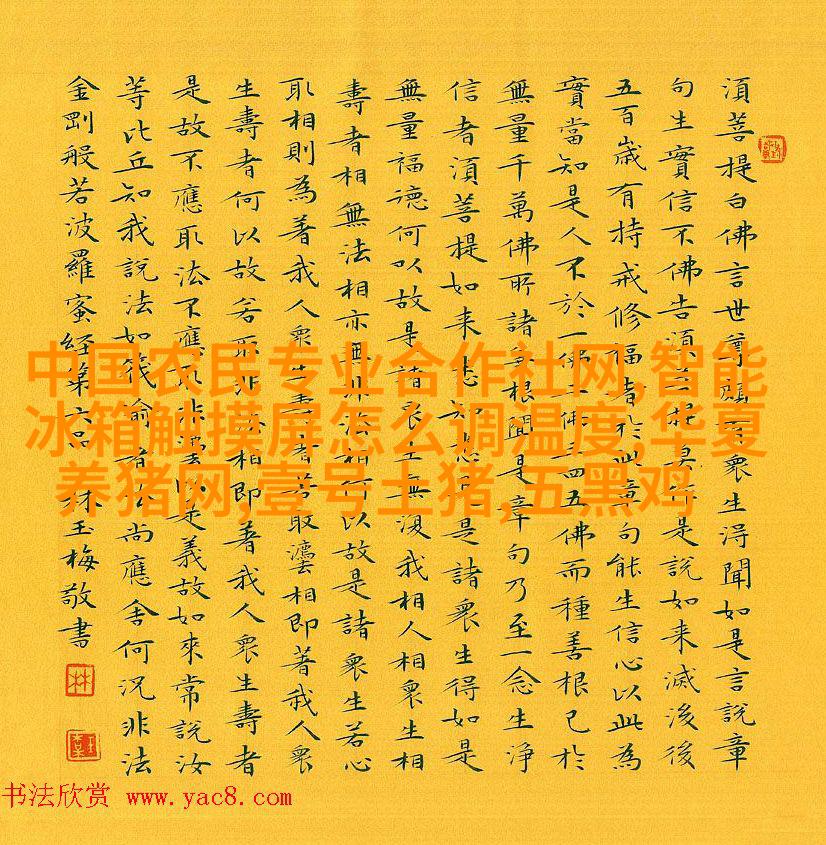 須菩提白佛言世尊頗有衆生得聞如是言說章
句生實信不佛告須菩提莫作是說如来滅後後
五百嵗有持戒修福者於此章句能生信心以此為
實當知是人不於一佛二佛三四五佛而種善根已於
無量千萬佛所諸善根聞是章句乃至一念生淨
信者須菩提如来悉知悉見是諸衆生得如是
無量福德何以故是諸衆生無復我相人相衆生相
壽者相無法相亦無非法相何以故是諸衆生若心
取相則為著我人衆生壽者若取灋相即著我人衆
生壽者何以故若取非法相即著我人衆生壽者
是故不應取法不應取非灋以是義故如來常說汝
等比丘知我說法如筏喻者法尚應舍何況非法
金剛般若波羅蜜経第六品 林玉梅敬書
林
中国农民专业合作社网,智能
冰箱触摸屏怎么调温度,华夏
养猪网,壹号土猪,五黑鸡
书法欣赏 www.yac8.com